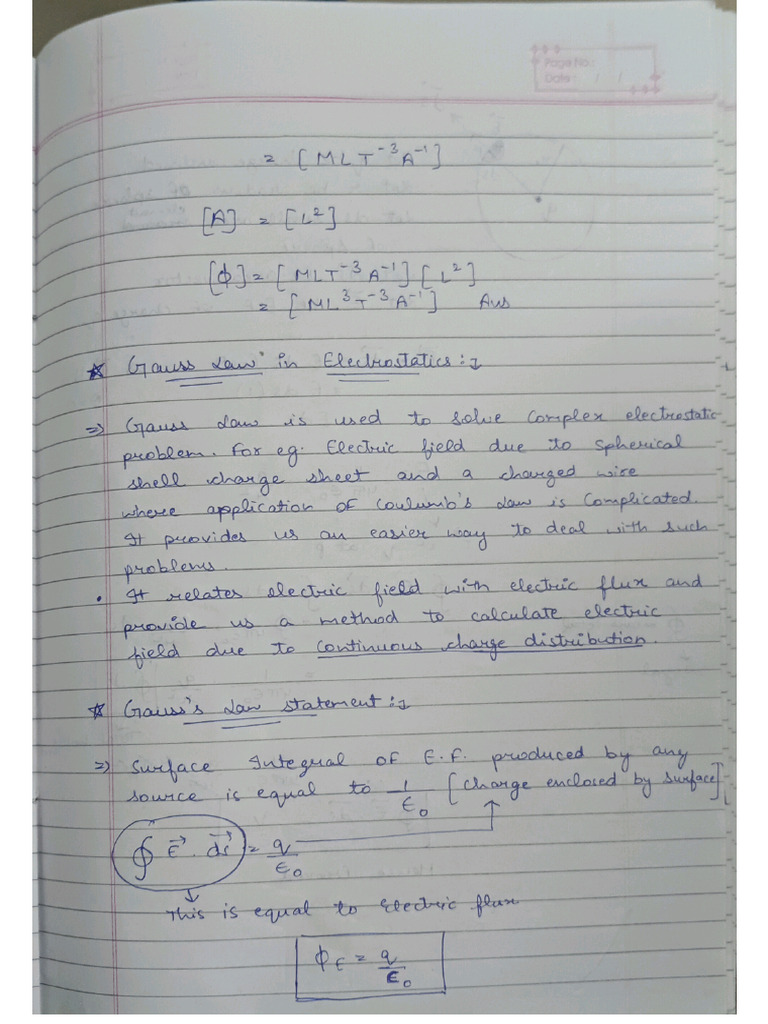 Page No.:
Date: / /
= [MLT⁻³A⁻¹]
[A] = [L²]
[ϕ] = [MLT⁻³A⁻¹] [L²]
= [ML³T⁻³A⁻¹] Ans
* Gauss Law in Electrostatics:↴
⇒ Gauss Law is used to solve complex electrostatic
problem. For eg. Electric field due to spherical
shell charge sheet and a charged wire
where application of Coulumb's Law is Complicated.
It provides us an easier way to deal with such
problems.
• It relates electric field with electric flux and
provide us a method to calculate electric
field due to continuous charge distribution.
* Gauss's Law statement:↴
⇒ Surface Integral of E.F. produced by any
source is equal to 1/ε₀ [charge enclosed by surface]
∮ E⃗ . ds⃗ = q/ε₀
This is equal to electric flux
ϕE = q/ε₀